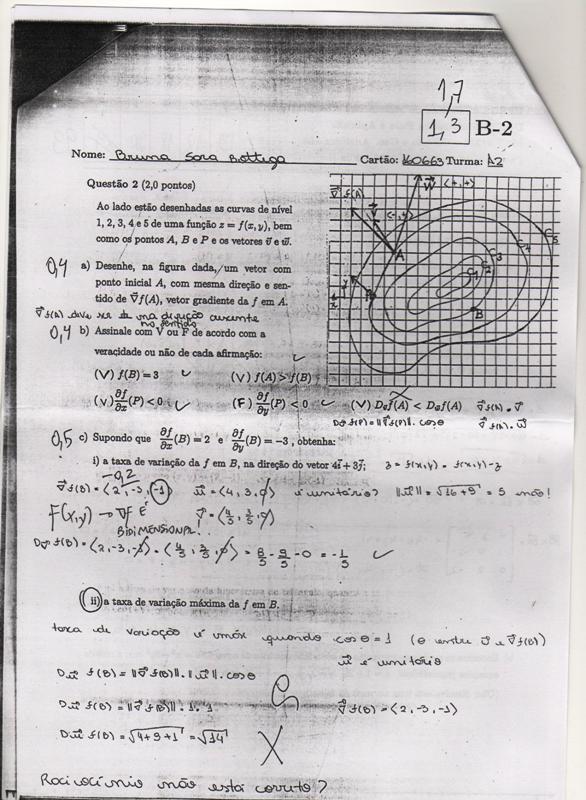 1,7
1,3 B-2
Nome: Bruna Sora Bottega Cartão: 160663 Turma: A2
Questão 2 (2,0 pontos)
Ao lado estão desenhadas as curvas de nível
1, 2, 3, 4 e 5 de uma função z = f(x, y), bem
como os pontos A, B e P e os vetores v⃗ e w⃗.
0,4 a) Desenhe, na figura dada, um vetor com
ponto inicial A, com mesma direção e sen-
tido de ∇⃗f(A), vetor gradiente da f em A.
∇⃗f(A) deve ser na direção crescente
no sentido
0,4 b) Assinale com V ou F de acordo com a
veracidade ou não de cada afirmação:
(V) f(B) = 3 (V) f(A) > f(B)
(V) ∂f/∂x(P) < 0 (F) ∂f/∂y(P) < 0 (V) Dv⃗f(A) < Dw⃗f(A) ∇⃗f(A).v⃗
Dv⃗f(P) = ||∇⃗f(P)||. cosθ ∇⃗f(A).w⃗
∇⃗f(A)
W⃗
V⃗
A
B
P
C1
C2
C3
C4
C5
y
x
0,5 c) Supondo que ∂f/∂x(B) = 2 e ∂f/∂y(B) = -3, obtenha:
i) a taxa de variação da f em B, na direção do vetor 4i⃗ + 3j⃗; z = f(x,y) = f(x,y) - z
-0,2
∇⃗f(B) = ⟨2, -3, -1⟩ u⃗ = ⟨4, 3, 0⟩ é unitário? ||u⃗|| = √16+9 = 5 não!
F(x,y) → ∇F É
BIDIMENSIONAL!
v⃗ = ⟨4/5, 3/5, 0⟩
Dv⃗ f(B) = ⟨2, -3, -1⟩ . ⟨4/5, 3/5, 0⟩ = 8/5 - 9/5 - 0 = -1/5
ii) a taxa de variação máxima da f em B.
taxa de variação é máx quando cosθ = 1 (θ entre u⃗ e ∇⃗f(B))
u⃗ é unitário
Du⃗ f(B) = ||∇⃗f(B)||.||u⃗||.cosθ
Du⃗ f(B) = ||∇⃗f(B)||.1.1 ∇⃗f(B) = ⟨2, -3, -1⟩
Du⃗ f(B) = √4+9+1 = √14
Raciocínio não está correto?